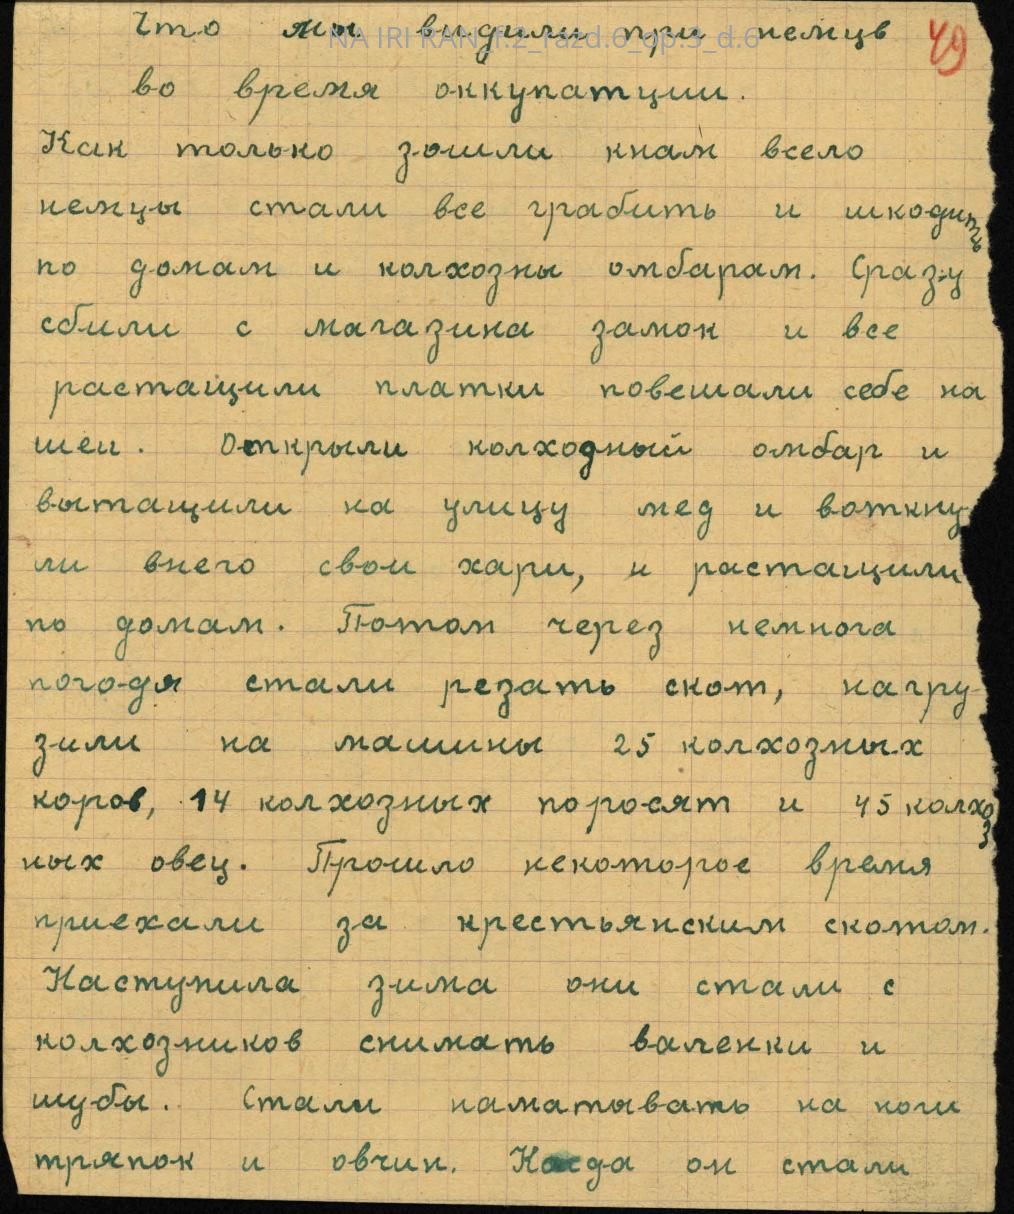 Что мы видили при немцв
49
NA IRI RAN_f.2_razd.6_op.3_d.6
во время оккупатции.
Как только зошли кнам всело
немцы стали все грабить и шкодить
по домам и колхозны омбарам. Сразу
сбили с магазина замок и все
растащили платки повешали себе на
шеи. Открыли колходный омбар и
вытащили на улицу мед и воткну-
ли внего свои хари, и растащили
по домам. Потом через немнога
погодя стали резать скот, нагру-
зили на машины 25 колхозных
коров, 14 колхозных поросят и 45 колхоз
ных овец. Прошло некоторое время
приехали за крестьянским скотом.
Наступила зима они стали с
колхозников снимать валенки и
шубы. Стали наматывать на ноги
тряпок и овчин. Когда он стали